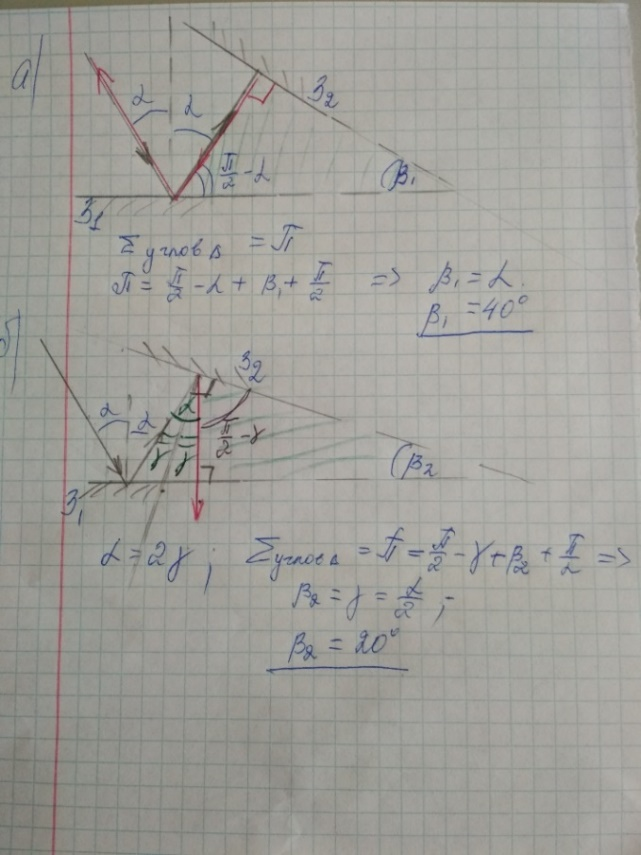 а)
α α
З₂
π/2 - α
β₁
З₁
Σ углов Δ = π
π = π/2 - α + β₁ + π/2 => β₁ = α.
β₁ = 40°
б)
З₂
α α α
γ γ π/2 - γ
β₂
З₁
α = 2γ ; Σ углов Δ = π = π/2 - γ + β₂ + π/2 =>
β₂ = γ = α/2 ; -
β₂ = 20°